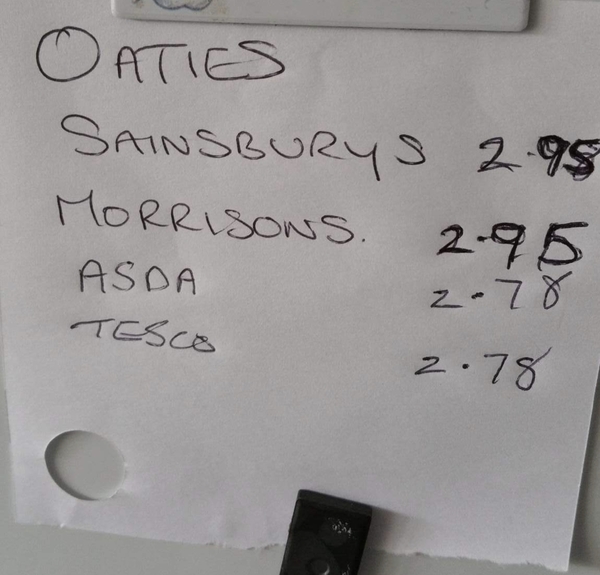 OATIES
SAINSBURYS 2.95
MORRISONS. 2.95
ASDA 2.78
TESCO 2.78